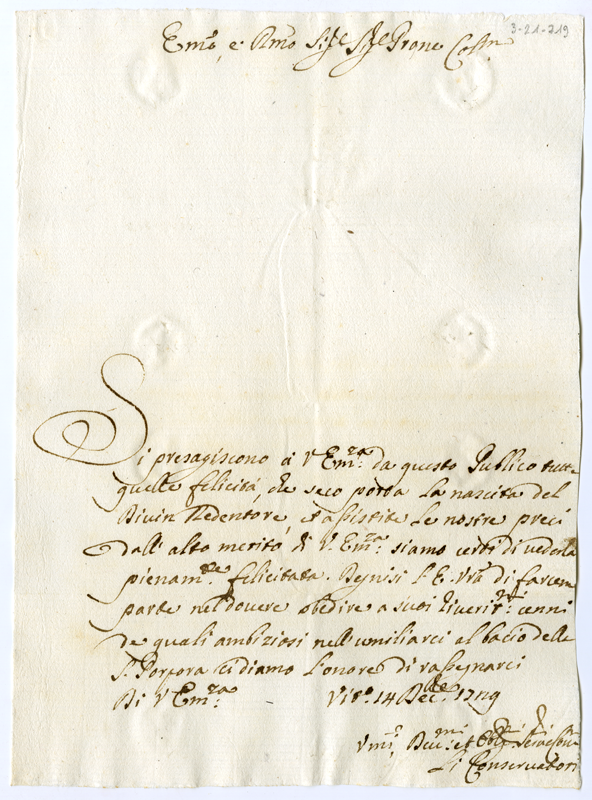 3-21-219
Emo, e Rmo Sigr Sigr Prone Colmo
Si presagiscono à V Emza: da questo Publico tutte
quelle felicità, che seco porta la nascita del
Divin Redentore, et assistite le nostre preci
dall' alto merito di V. Emza: siamo certi di vederla
pienamte felicitata. Degnisi l'E. Vra di farcene
parte nel dovere obedire a suoi riveritmi: cenni
de quali ambiziosi nell' umiliarci al bacio della
S. Porpora ci diamo l'onore di rassegnarci
Di V Emza: 14 Decbre. 1719
Vmi, Devmi: et
Li Conservatori